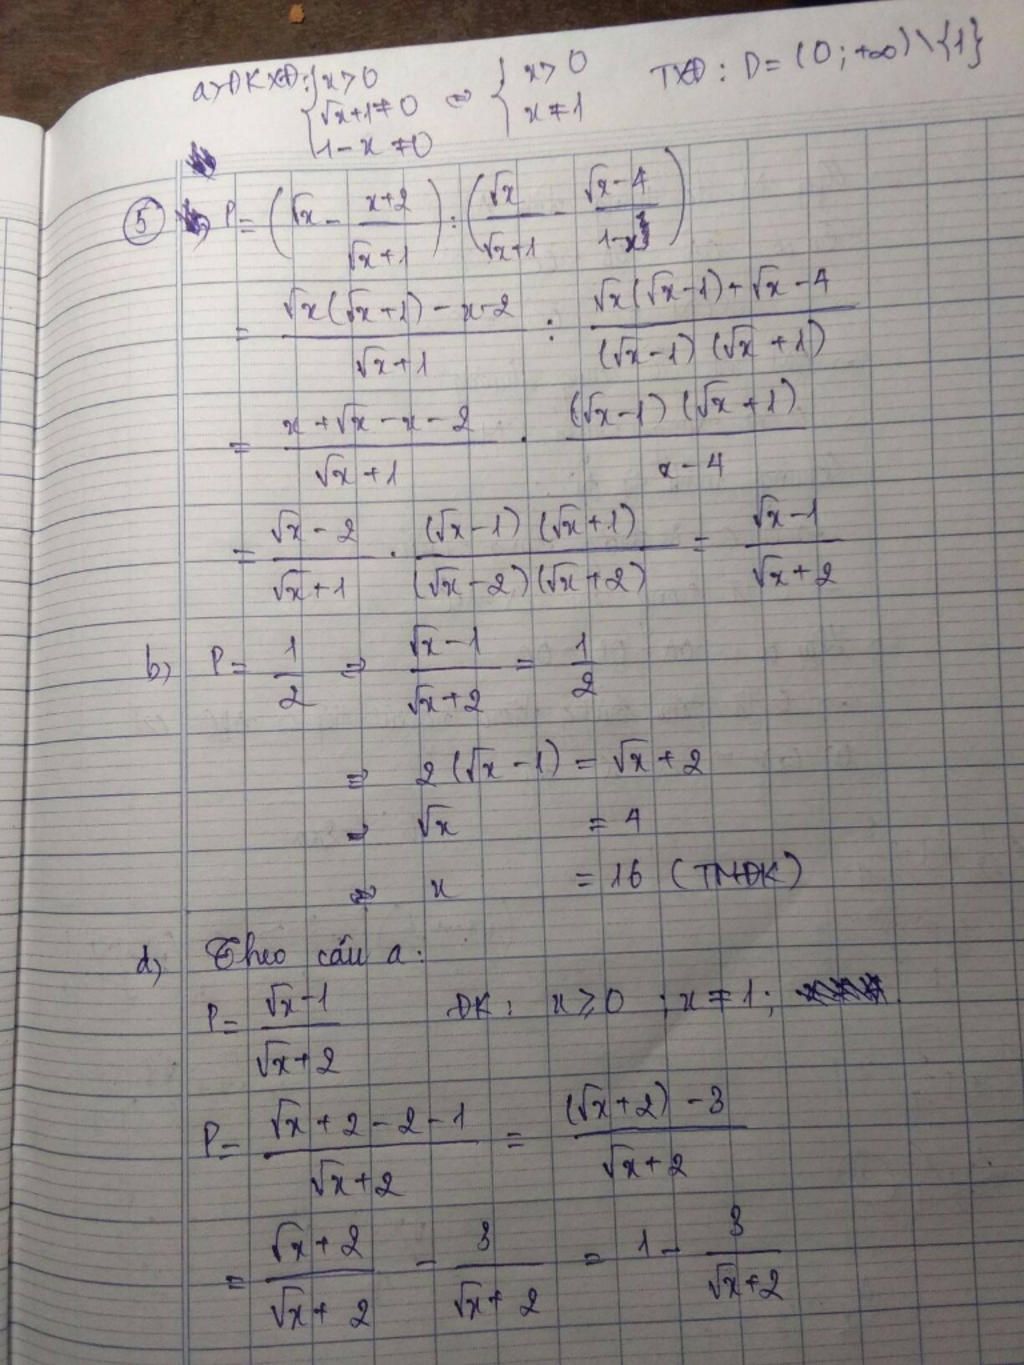 a) ĐKXĐ: { x > 0 ; √x + 1 ≠ 0 ; 1 - x ≠ 0 ⇔ { x > 0 ; x ≠ 1 TXĐ: D = (0; +∞) \ {1}
5 P = (√x - (x+2)/(√x+1)) : (√x/(√x+1) - (√x-4)/(1-x))
= (√x(√x+1) - x-2)/(√x+1) : (√x(√x-1) + √x-4)/((√x-1)(√x+1))
= (x + √x - x - 2)/(√x+1) . ((√x-1)(√x+1))/(x-4)
= (√x-2)/(√x+1) . ((√x-1)(√x+1))/((√x-2)(√x+2)) = (√x-1)/(√x+2)
b) P = 1/2 ⇒ (√x-1)/(√x+2) = 1/2
⇒ 2(√x-1) = √x+2
⇒ √x = 4
⇒ x = 16 (TMĐK)
d) Theo câu a:
P = (√x-1)/(√x+2) ĐK: x ≥ 0 ; x ≠ 1 ;
P = (√x+2-2-1)/(√x+2) = ((√x+2)-3)/(√x+2)
= (√x+2)/(√x+2) - 3/(√x+2) = 1 - 3/(√x+2)